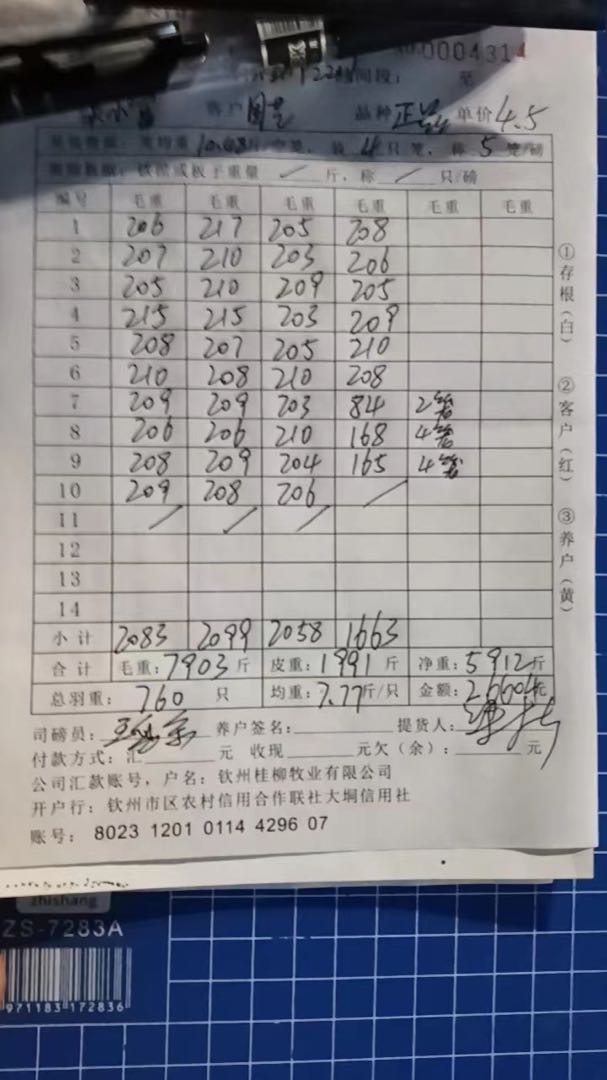 0004314
间段： 至
客户 品种 正品 单价 4.5
装 4 只/笼，称 5 笼/磅
铁筐或板子重量 / 斤，称 / 只/磅
编号 毛重 毛重 毛重 毛重 毛重 毛重
1 206 217 205 208
2 207 210 203 206
3 205 210 209 205
4 215 215 203 209
5 208 207 205 210
6 210 208 210 208
7 209 209 203 84 2笼
8 206 206 210 168 4笼
9 208 209 204 165 4笼
10 209 208 206 /
11 / / /
12
13
14
小计 2083 2099 2058 1663
合计 毛重：7903斤 皮重：1991斤 净重：5912斤
总羽重：760 只 均重：7.77斤/只 金额：26604元
司磅员： 养户签名： 提货人：
付款方式：汇 元 收现 元欠（余）： 元
公司汇款账号，户名：钦州桂柳牧业有限公司
开户行：钦州市区农村信用合作联社大垌信用社
账号：8023 1201 0114 4296 07
①存根（白）
②客户（红）
③养户（黄）
zhishang
ZS-7283A
971183 172836